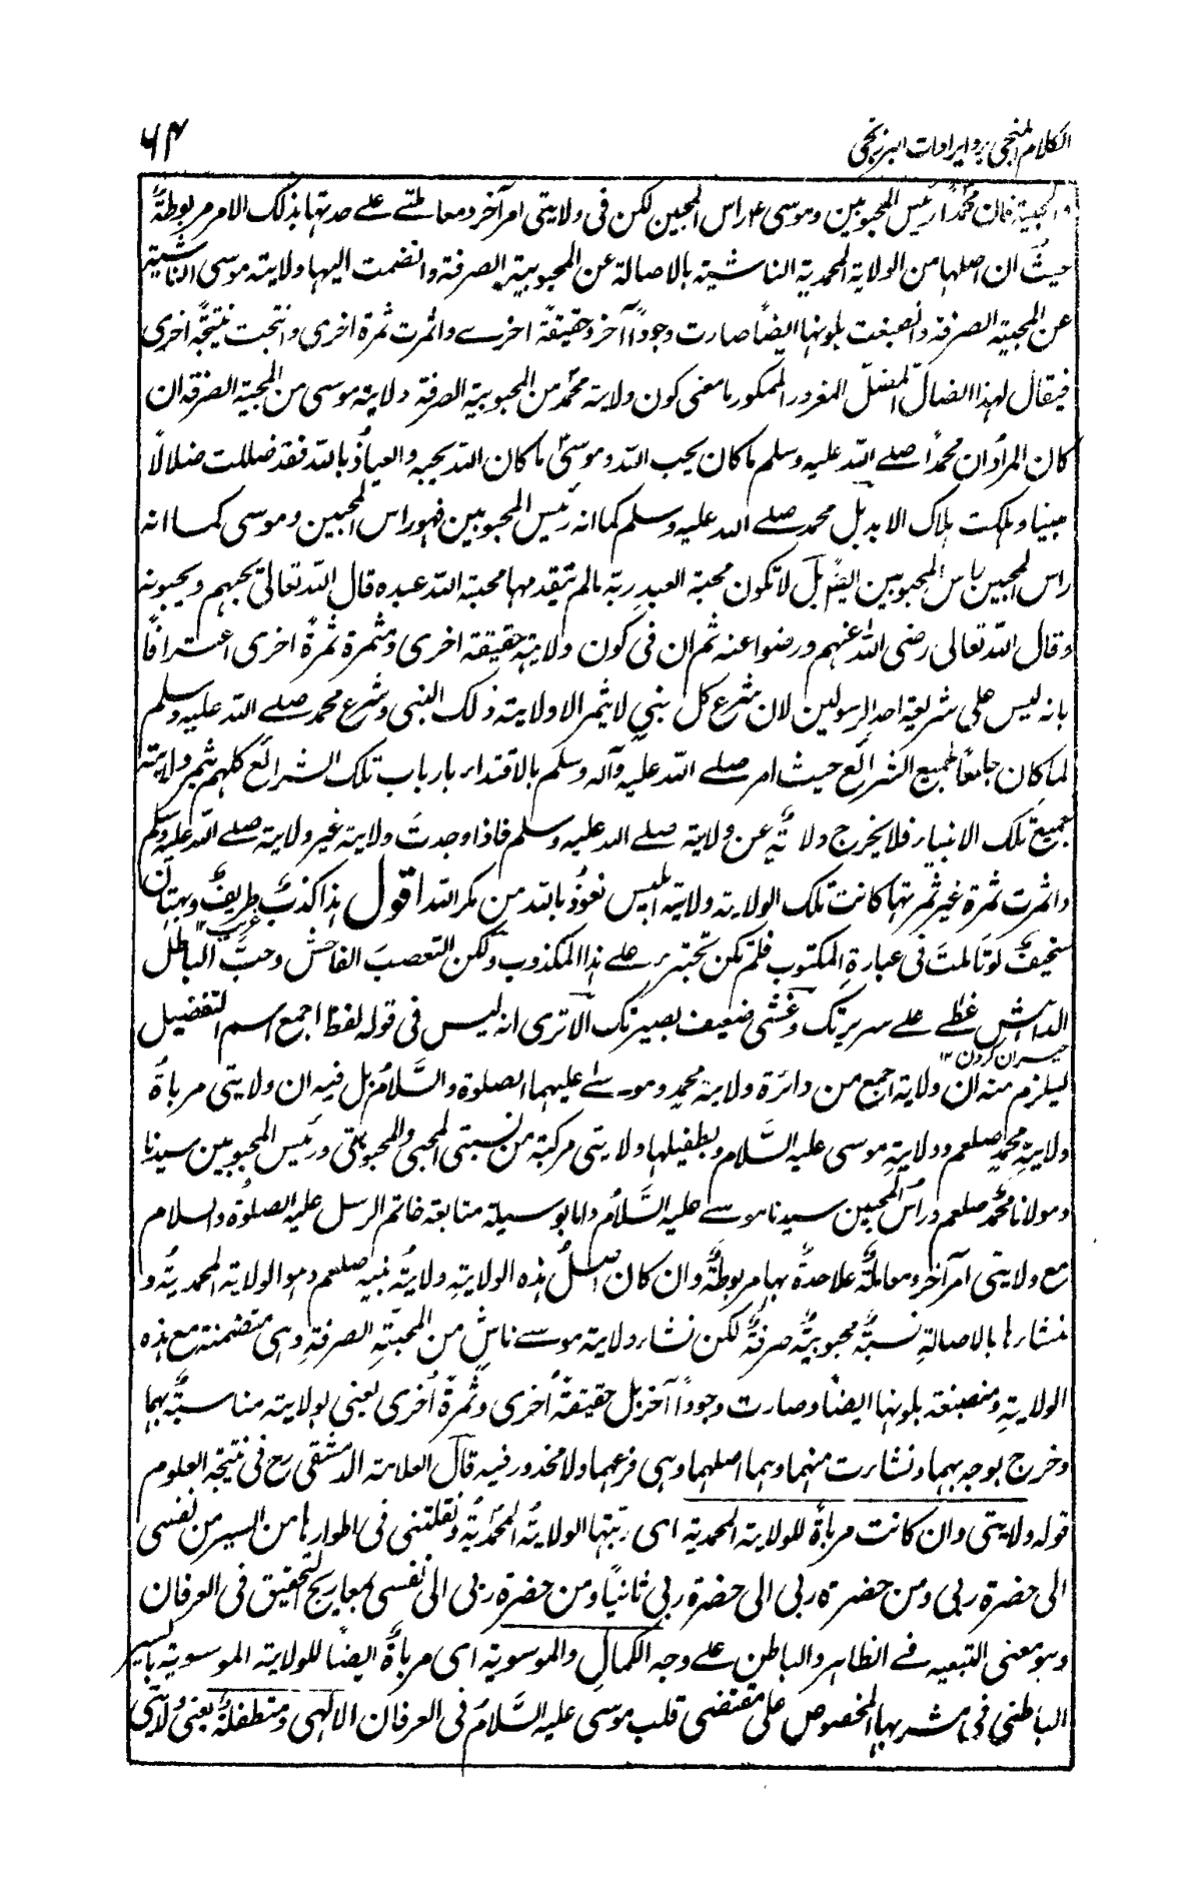 الكلام المنجى برد ايرادات البرزنجى
٦٤
والمحبية فان محمدًا رئيس المحبوبين وموسى ع راس المحبين لكن فى ولايتى امر آخر ومعاملتى على حدتها بذلك الامر مربوطةٌ
حيثُ ان اصلها من الولاية المحمدية الناشية بالاصالة عن المحبوبية الصرفة وانضمت اليها ولاية موسى الناشية
عن المحبية الصرفة وانصبغت بلونها ايضًا صارت وجودًا آخر وحقيقةً اخرے واثمرت ثمرة اخرى وانتجت نتيجةً اخرى
فيقال لهذا الضال المضلّ المغرور الممكور ما معنى كون ولاية محمد من المحبوبية الصرفة وولاية موسى من المحبية الصرفة ان
كان المراد ان محمدًا صلے الله عليه وسلم ما كان يحب الله وموسىٰ ما كان الله يحبه والعياذ بالله فقد ضللت ضلالًا
مبينا وهلكت هلاك الابد بل محمد صلے الله عليه وسلم كما انه رئيس المحبوبين فهو راس المحبين وموسى كما انه
راس المحبين راس المحبوبين ايضًا بل لا تكون محبة العبد ربّه مالم تتقدمها محبة الله عبده قال الله تعالىٰ يحبهم ويحبونه
وقال الله تعالى رضى الله عنهم ورضوا عنه ثم ان فى كون ولايته حقيقة اخرى ومثمرة ثمرةً اخرى اعترافًا
بانه ليس على شريعة احد الرسولين لان شرع كل نبي لا يثمر الا ولاية ذلك النبى وشرع محمد صلے الله عليه وسلم
لما كان جامعًا لجميع الشرائع حيث امر صلے الله عليه وآله وسلم بالاقتداء بارباب تلك الشرائع كلهم ثمر ولايته
جميع تلك الانبياء فلا يخرج ولايةٌ عن ولايته صلے الله عليه وسلم فاذا وجدتَ ولاية غير ولايته صلے الله عليه وسلم
واثمرت ثمرة غير ثمرتها كانت تلك الولاية ولاية ابليس نعوذ بالله من مكر الله اقول هذا كذبٌ طريفٌ وبهتان
سخيفٌ لو تاملتَ فى عبارةِ المكتوب فلم تكن تجترے علے هذا المكذوب ولكن التعصبَ الفاحش وحبَّ الباطل
الداهش غطے علے سريرتك وغشى ضعيف بصيرتك الا ترى انه ليس فى قوله لفظ اجمع اسم التفضيل
حيران كردن ١٢
ليلزم منه ان ولايته اجمع من دائرة ولاية محمدٍ وموسے عليهما الصلوة والسَّلامُ بل فيه ان ولايتى مرباةُ
ولايةِ محمدٍ صلعم وولايةِ موسى عليه السَّلام وبطفيلها ولايتى مركبة من نسبتى المحبى والمحبوبى ورئيس المحبوبين سيدنا
ومولانا محمد صلعم ورأس المحبين سيدنا موسے عليه السَّلامُ وانا بوسيلة متابعة خاتم الرسل عليه الصلوة والسلام
مع ولايتى امر آخر ومعاملةٌ علاحدةٌ بها مربوطةٌ وان كان اصلُ هذه الولايةِ ولايةُ نبيه صلعم وهو الولاية المحمديةُ و
منشاءها بالاصالةِ نسبةٌ محبوبيةٌ صرفةٌ لكن نشاء ولاية موسے ناشٍ من المحبيّةِ الصرفةِ وهى متضمنة مع هذه
الولايةِ ومنصبغة بلونها ايضًا وصارت وجودًا آخر بل حقيقةً اُخرى وثمرةً اُخرى يعنى لولايته مناسبةٌ بهما
وخرج بوجه بهما ونشاءت منهما وهما اصلهما وهى فرعهما ولا محذور فيه قال العلامة الدمشقى رح فى نتيجة العلوم
قوله ولايتى وان كانت مرباةً للولاية المحمدية اى ربتها الولايةُ المحمّديةُ ونقلتنى فى اطوارها من السير من نفسى
الى حضرة ربى ومن حضرة ربى الى حضرة ربى ثانيًا ومن حضرة ربى الى نفسى بمعاريج التحقيق فى العرفان
وهو معنى التبعيه فے الظاهر والباطن علے وجه الكمال والموسوية اى مرباةٌ ايضًا للولاية الموسوية بالسير
الباطنى فى مشربها المخصوص على مقتضى قلب موسى عليه السَّلامُ فى العرفان الالهى ومتطفلةٌ يعنى ولايتى